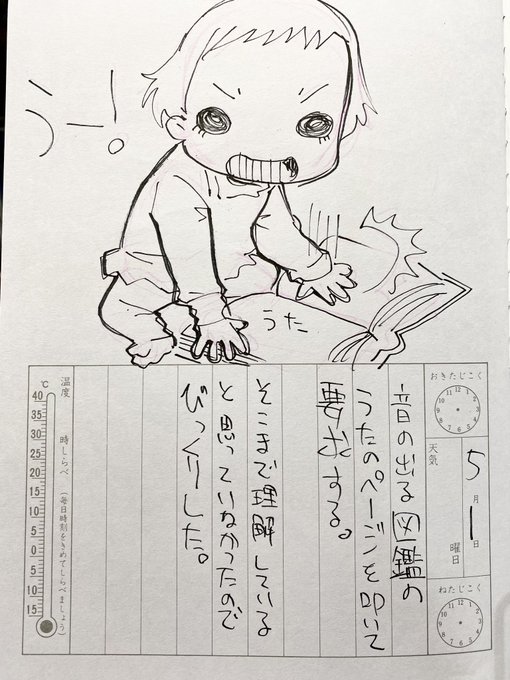 うー!
うた
おきたじこく
5月1日
曜日
天気
ねたじこく
音の出る図鑑の
うたのページを叩いて
要求する。
そこまで理解している
と思っていなかったので
びっくりした。
温度 時しらべ (毎日時刻をきめてしらべましょう)
℃
40
35
30
25
20
15
10
5
0
5
10
15